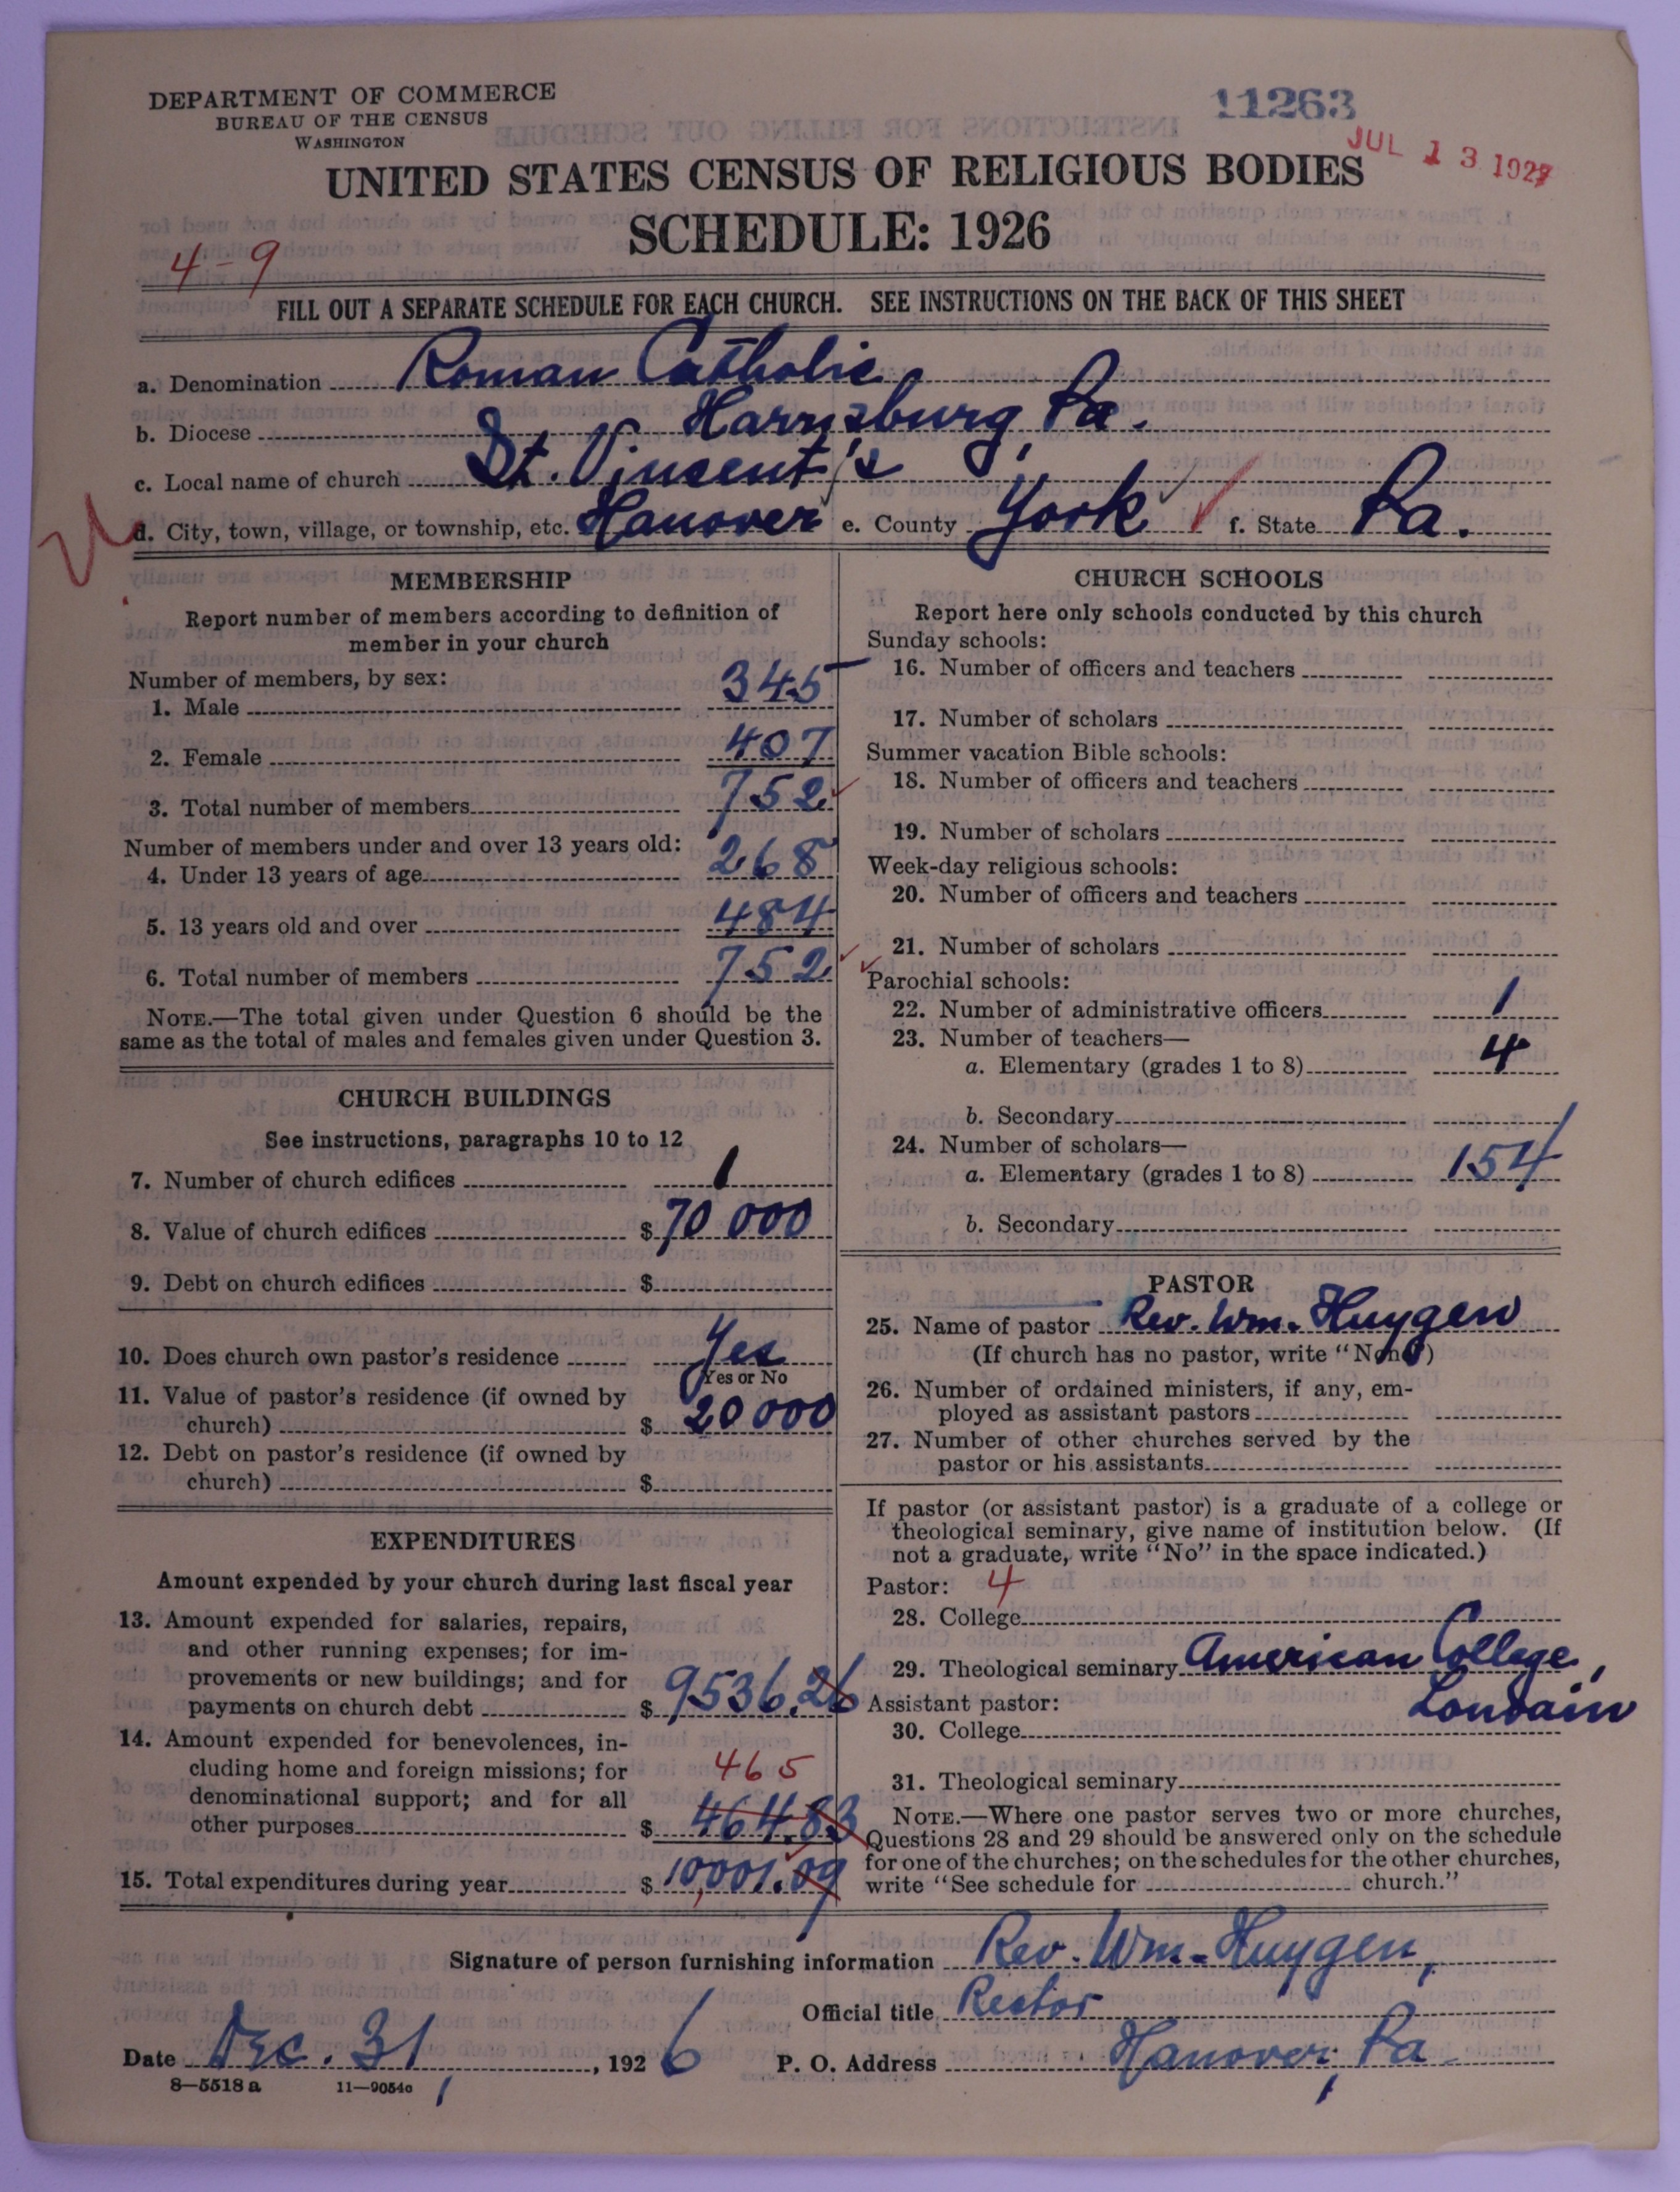 DEPARTMENT OF COMMERCE
BUREAU OF THE CENSUS
WASHINGTON
11263
JUL 13 1927
UNITED STATES CENSUS OF RELIGIOUS BODIES
SCHEDULE: 1926
4-9
FILL OUT A SEPARATE SCHEDULE FOR EACH CHURCH. SEE INSTRUCTIONS ON THE BACK OF THIS SHEET
a. Denomination Roman Catholic
b. Diocese Harrisburg, Pa.
c. Local name of church St. Vincent's
d. City, town, village, or township, etc. Hanover e. County York f. State Pa.
MEMBERSHIP
Report number of members according to definition of
member in your church
Number of members, by sex:
1. Male 345
2. Female 407
3. Total number of members 752
Number of members under and over 13 years old:
4. Under 13 years of age 268
5. 13 years old and over 484
6. Total number of members 752
NOTE.—The total given under Question 6 should be the
same as the total of males and females given under Question 3.
CHURCH BUILDINGS
See instructions, paragraphs 10 to 12
7. Number of church edifices 1
8. Value of church edifices $70 000
9. Debt on church edifices $
10. Does church own pastor's residence Yes
Yes or No
11. Value of pastor's residence (if owned by
church) $ 20 000
12. Debt on pastor's residence (if owned by
church) $
EXPENDITURES
Amount expended by your church during last fiscal year
13. Amount expended for salaries, repairs,
and other running expenses; for im-
provements or new buildings; and for
payments on church debt $ 9536.26
14. Amount expended for benevolences, in-
cluding home and foreign missions; for 465
denominational support; and for all
other purposes $ 464.83
15. Total expenditures during year $ 10,001.09
CHURCH SCHOOLS
Report here only schools conducted by this church
Sunday schools:
16. Number of officers and teachers
17. Number of scholars
Summer vacation Bible schools:
18. Number of officers and teachers
19. Number of scholars
Week-day religious schools:
20. Number of officers and teachers
21. Number of scholars
Parochial schools:
22. Number of administrative officers 1
23. Number of teachers—
a. Elementary (grades 1 to 8) 4
b. Secondary
24. Number of scholars—
a. Elementary (grades 1 to 8) 154
b. Secondary
PASTOR
25. Name of pastor Rev. Wm. Huygen
(If church has no pastor, write "None")
26. Number of ordained ministers, if any, em-
ployed as assistant pastors
27. Number of other churches served by the
pastor or his assistants
If pastor (or assistant pastor) is a graduate of a college or
theological seminary, give name of institution below. (If
not a graduate, write "No" in the space indicated.)
Pastor: 4
28. College
29. Theological seminary American College,
Assistant pastor: Louvain
30. College
31. Theological seminary
NOTE.—Where one pastor serves two or more churches,
Questions 28 and 29 should be answered only on the schedule
for one of the churches; on the schedules for the other churches,
write "See schedule for church."
Signature of person furnishing information Rev. Wm. Huygen,
Official title Rector
Date Dec. 31, 1926 P. O. Address Hanover, Pa
8—5518a 11—9054c